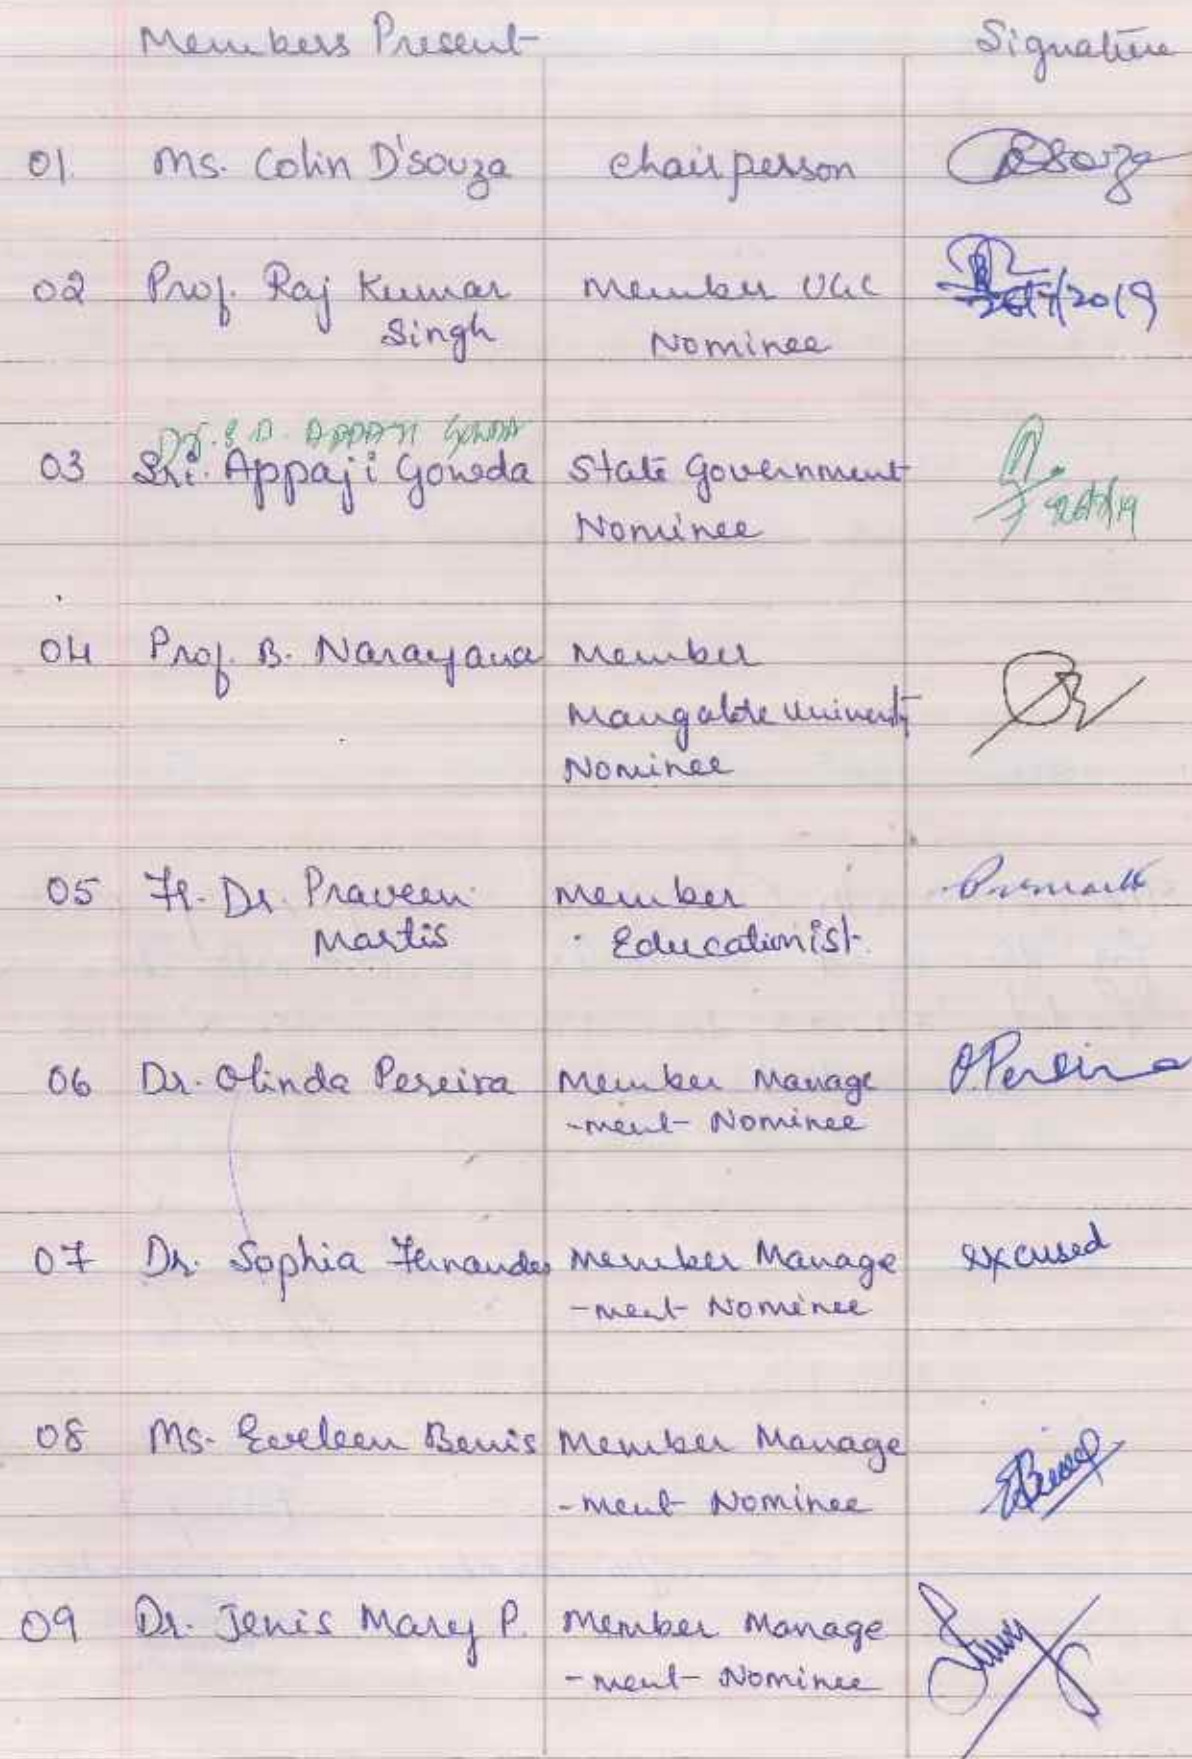 Members Present Signature
01. Ms. Colin D'souza chairperson Dsouza
02 Prof. Raj Kumar Member UGC 26/7/2019
Singh Nominee
03 Sri. Appaji Gowda State Government 26/7/19
Nominee
04 Prof. B. Narayana Member
Mangalore University
Nominee
05 Fr. Dr. Praveen Member
Martis Educationist
06 Dr. Olinda Pereira Member Manage O.Pereira
-ment Nominee
07 Dr. Sophia Fernandes Member Manage excused
-ment Nominee
08 Ms. Eveleen Benis Member Manage
-ment Nominee
09 Dr. Jenis Mary P. Member Manage
-ment Nominee